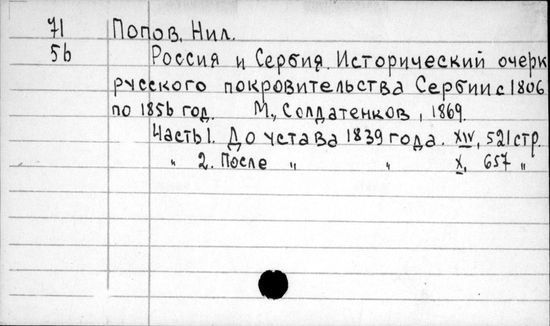 71 Попов, Нил.
56 Россия и Сербия. Исторический очерк
русского покровительства Сербии с 1806
по 1856 год. М., Солдатенков, 1869.
Часть 1. До устава 1839 года. XIV, 521 стр.
" 2. После " " X, 657 "